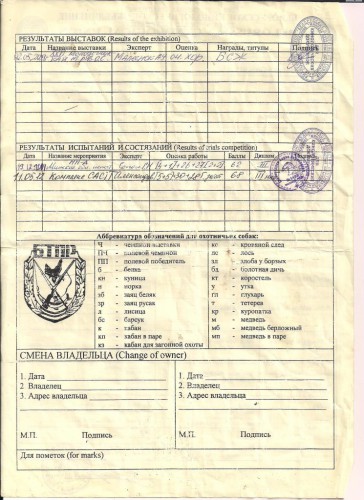 РЕЗУЛЬТАТЫ ВЫСТАВОК (Results of the exhibition)
Дата Название выставки Эксперт Оценка Награды, титулы Подпись
оч. хор.
РЕЗУЛЬТАТЫ ИСПЫТАНИЙ И СОСТЯЗАНИЙ (Results of trials competition)
Дата Название мероприятия Эксперт Оценка работы Баллы Диплом Подпись
62 III
11.05.12 САСТ 68 III
Аббревиатура обозначений для охотничьих собак:
Ч - чемпион выставки кс - кровяной след
П-Ч - полевой чемпион лс - лось
ПП - полевой победитель зл - злоба у борзых
б - белка бд - болотная дичь
кн - куница к - коростель
н - норка у - утка
зб - заяц беляк гл - глухарь
зр - заяц русак т - тетерев
л - лисица кр - куропатка
бс - барсук м - медведь
к - кабан мб - медведь берложный
кп - кабан в паре мп - медведь в паре
кз - кабан для загонной охоты
СМЕНА ВЛАДЕЛЬЦА (Change of owner)
1. Дата 1. Дата
2. Владелец 2. Владелец
3. Адрес владельца 3. Адрес владельца
М.П. Подпись М.П. Подпись
Для пометок (for marks)